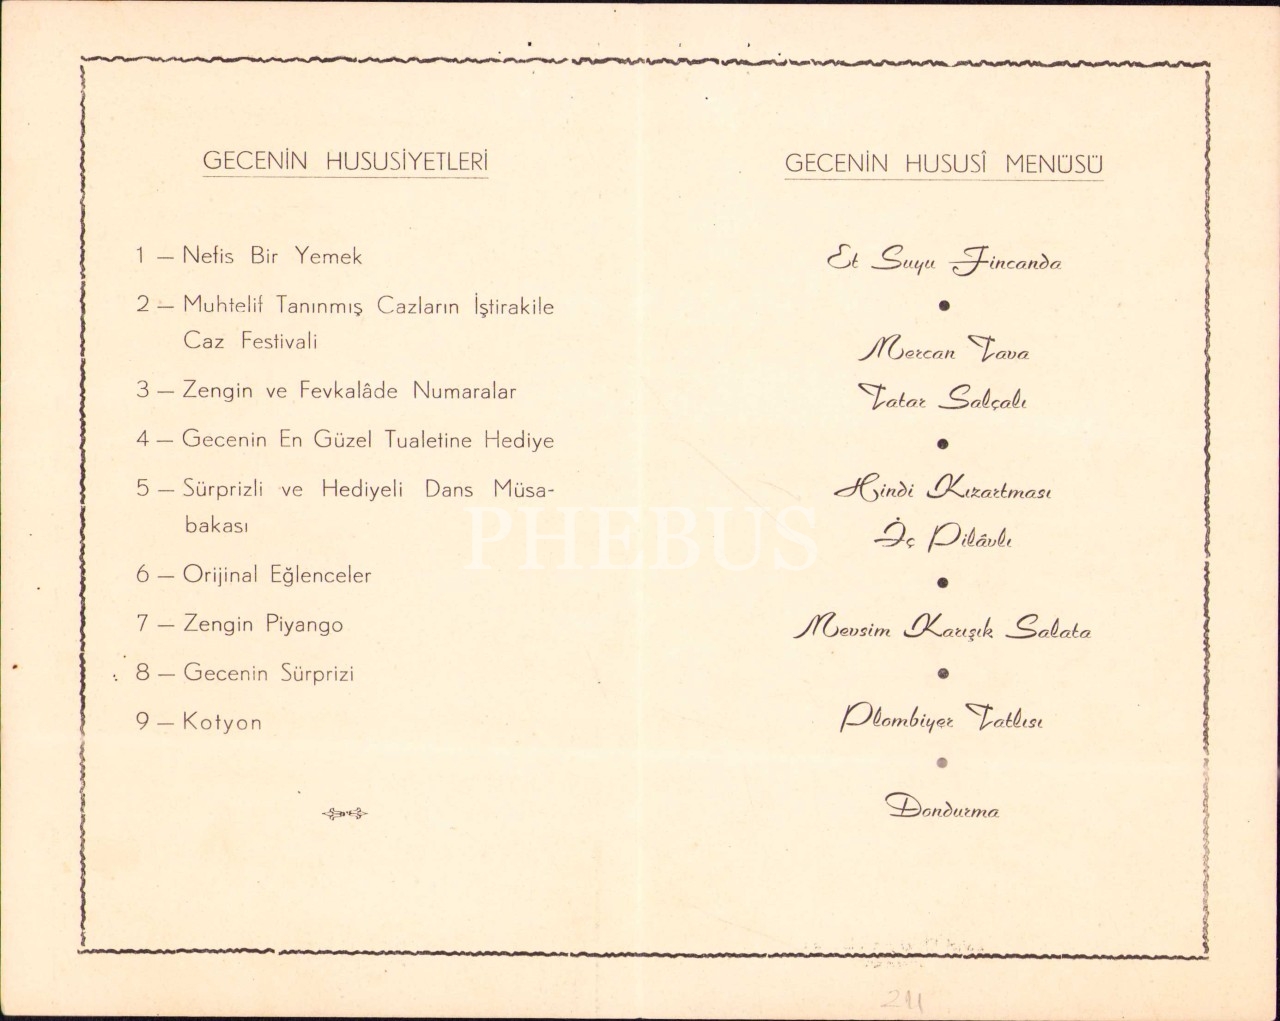 GECENİN HUSUSİYETLERİ
1 — Nefis Bir Yemek
2 — Muhtelif Tanınmış Cazların İştirakile
Caz Festivali
3 — Zengin ve Fevkalâde Numaralar
4 — Gecenin En Güzel Tualetine Hediye
5 — Sürprizli ve Hediyeli Dans Müsa-
bakası
6 — Orijinal Eğlenceler
7 — Zengin Piyango
8 — Gecenin Sürprizi
9 — Kotyon
GECENİN HUSUSÎ MENÜSÜ
Et Suyu Fincanda
Mercan Tava
Tatar Salçalı
Hindi Kızartması
İç Pilâvlı
Mevsim Karışık Salata
Plombiyer Tatlısı
Dondurma
PHEBUS
211